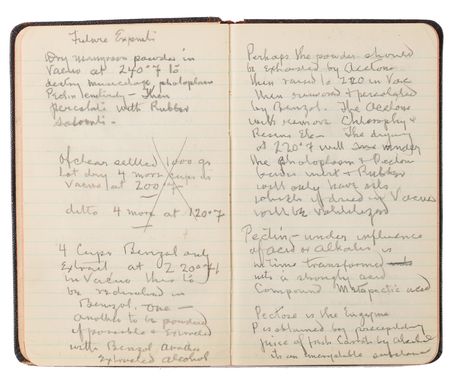 Future Experiments
Dry mangrove powder in
Vacuo at 240°F to
destroy mucilage protoplasm
Pectin entirely - then
percolate with Rubber
solvent.
of clear settled 1000 gr
hot dry 4 more cups in
Vacuo at 200°F
ditto 4 more at 120°F
4 Cups Benzol only
Extract at 220°F
in Vacuo this to
be redissolved in
Benzol. one
another to be powdered
if possible & Extracted
with Benzol another
extracted alcohol
Perhaps the powder should
be exhausted by Acetone
then raised to 220 in Vac
then removed & percolated
by Benzol. The Acetone
will remove Chlorophyl &
Resins Etc. The drying
at 220°F will render
the protoplasm & Pectin
inert & Rubber
will only have its
volatile if dried in Vacuo
will be volatilized
Pectin - under influence
of acid or alkalis is
in time transformed
into a strongly acid
Compound Metapectic acid
Pectose is the Enzyme
P is obtained by precipitating
juice of fresh Carrots by alcohol
its an uncrystable substance